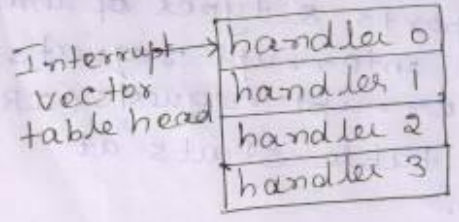 Interrupt
vector
table head
handler 0
handler 1
handler 2
handler 3